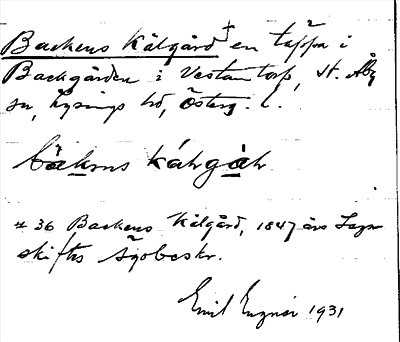 Backens Kålgård † en täppa i
Backgården i Vestantorp, St. Åby
sn, Lysings hd, Österg. l.
bàkens kálgàḷ
# 36 Backens Kålgård, 1847 års Laga
skiftes Egobeskr.
Emil Engnér 1931